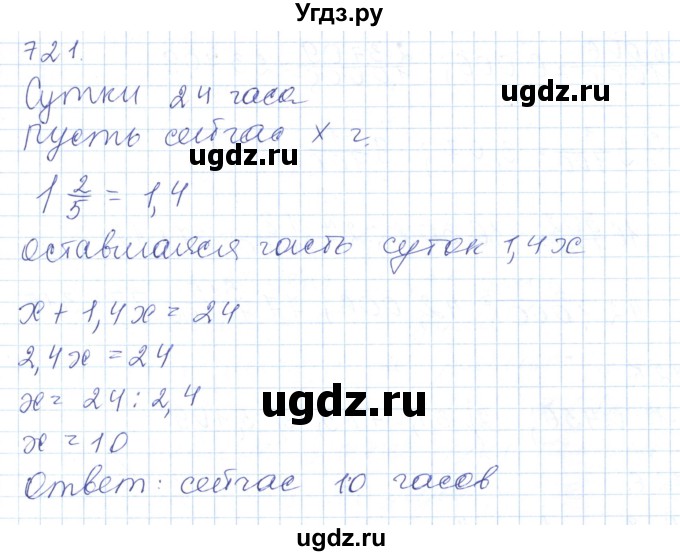 Угдз.ру
721.
Сутки 24 часа
ugdz.ru
Пусть сейчас x ч.
ugdz.ru
1 2/5 = 1,4
оставшаяся часть суток 1,4x
x + 1,4x = 24
2,4x = 24
x = 24 : 2,4
ugdz.ru
x = 10
Ответ: сейчас 10 часов
ugdz.ru
ugdz.ru